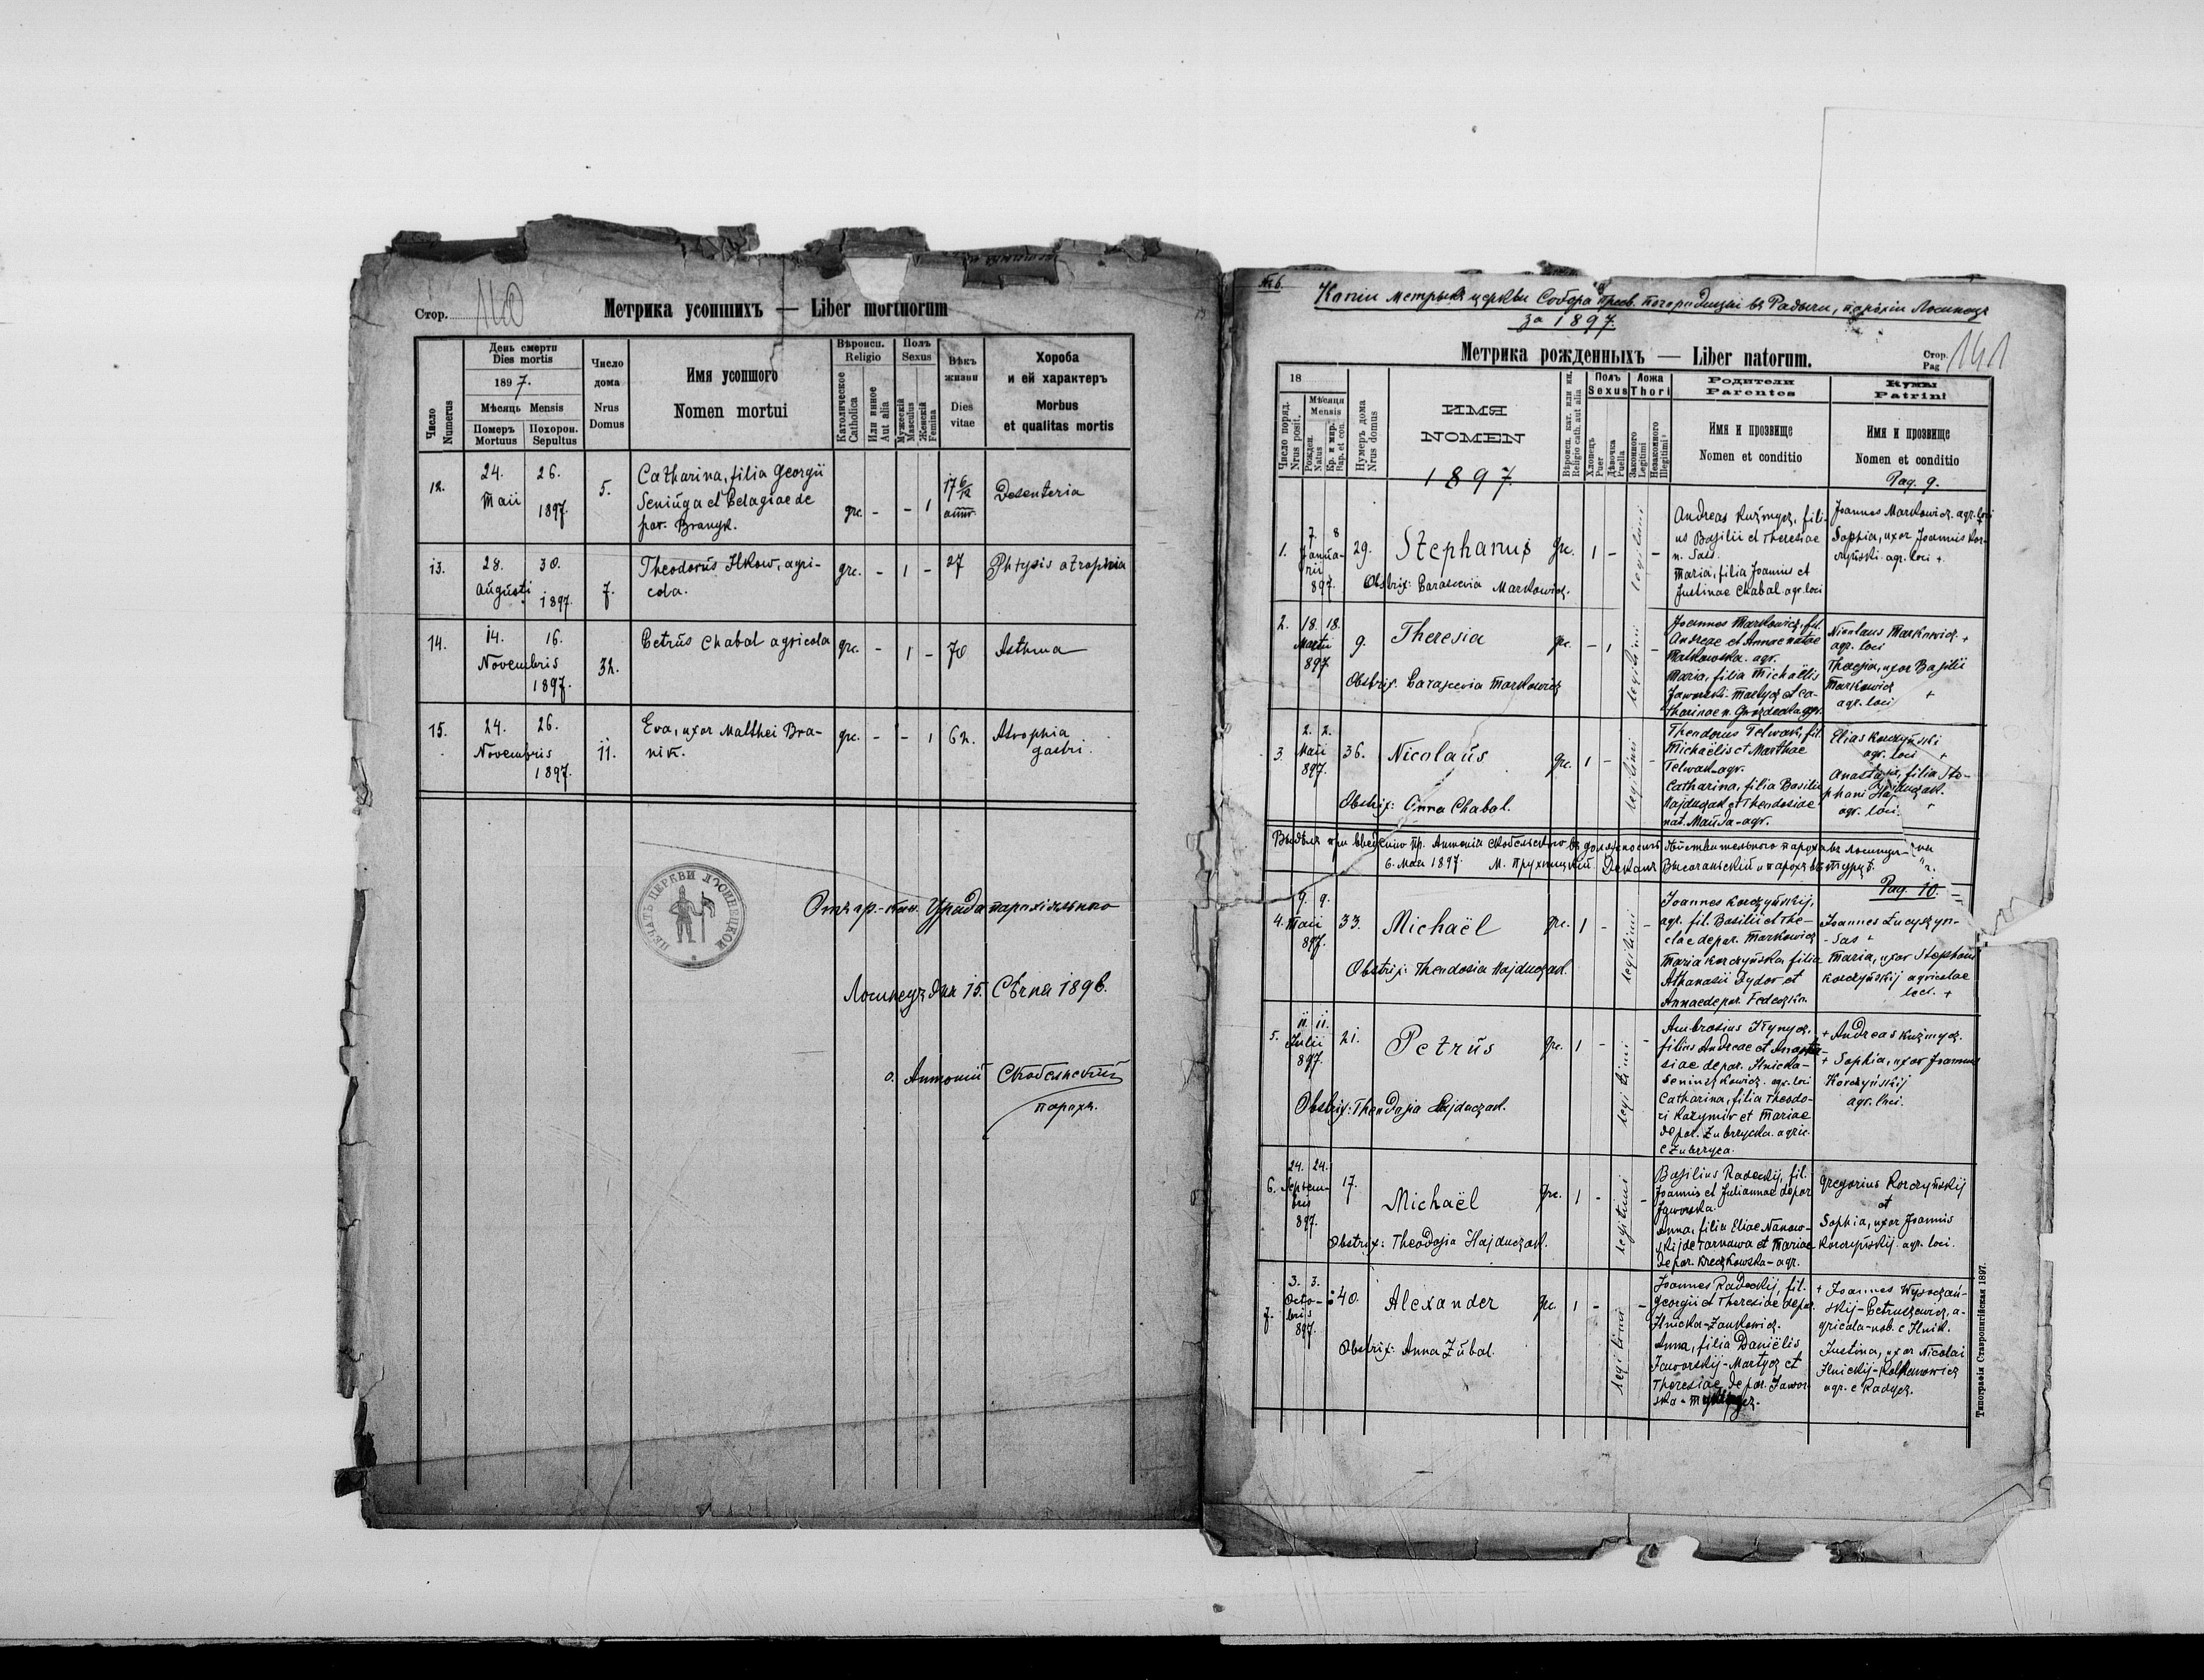 Стор. 140
Метрика усопшихъ — Liber mortuorum
Число Numerus
День смерти
Dies mortis
1897.
Мѣсяць Mensis
Померъ Mortuus
Похорон. Sepultus
Число дома
Nrus Domus
Имя усопшого
Nomen mortui
Вѣроисп.
Religio
Католическое Catholica
Или инное Aut alia
Полъ
Sexus
Мужескій Masculus
Женскій Femina
Вѣкъ жизни
Dies vitae
Хороба
и ей характеръ
Morbus
et qualitas mortis
12. 24. 26. Maii 1897. 5.
Catharina, filia Georgii
Seniuga et Pelagiae de
par. Branyk.
grc. - - 1 17 6/12 annor. Desenteria
13. 28. 30. Augusti 1897. 7.
Theodorus Ilkow, agri-
cola.
grc. - 1 - 27 Phtysis atrophia
14. 14. 16. Novembris 1897. 32.
Petrus Chabal agricola
grc. - 1 - 70 Asthma
15. 24. 26. Novembris 1897. 11.
Eva, uxor Matthei Bra-
nik.
grc. - - 1 62. Atrophia
gastri.
ПЕЧАТЬ ЦЕРКВИ ЛОСИНЕЦКОЙ
Отъ гр.-кат. Уряда парохіяльного
Лосинецъ дня 15. Сѣчня 1898.
о. Антоній Скобельскій
парохъ.
№6
Копіи метрыкъ церкви Собора Пресв. Богородицы въ Радычи, парохіи Лосинецъ
за 1897.
Метрика рожденныхъ — Liber natorum.
Стор.
Pag 141
18
Число поряд. Nrus posit.
Мѣсяця
Mensis
Рожден. Natus
Кр. и мир. Bap. et con.
Нумеръ дома Nrus domus
ИМЯ
NOMEN
1897.
Вѣроисп. кат. или ин. Religio cath. aut alia
Полъ
Sexus
Хлопецъ Puer
Дѣвочка Puella
Ложа
Thori
Законного Legitimi
Незаконного Illegitimi
Родители
Parentes
Имя и прозвище
Nomen et conditio
Кумы
Patrini
Имя и прозвище
Nomen et conditio
Pag. 9.
1. 7. 8 Janua-
rii 897. 29. Stephanus grc. 1 - legitimi -
Obstrix: Parascevia Markowicz.
Andreas Kuźmycz, fili-
us Basilii et Theresiae
n. Sas.
Maria, filia Joannis et
Justinae Chabal agr. loci
Joannes Markowicz. agr. loci
Sophia, uxor Joannis Kor-
czyński agr. loci +
2. 18. 18. Martii 897. 9. Theresia grc. - 1 legitimi -
Obstrix. Parascevia Markowicz
Joannes Markowicz, fil.
Andreae et Annae natae
Malkowska. agr.
Maria, filia Michaëlis
Jaworski-Martycz et Ca-
tharinae n. Gwozdecka agr.
Nicolaus Markowicz +
agr. loci
Theresia, uxor Basilii
Markowicz +
agr. loci
3. 2. 2. Maii 897. 36. Nicolaus grc. 1 - legitimi -
Obstrix: Anna Chabal.
Theodorus Telwak, fil.
Michaëlis et Marthae
Telwak agr.
Catharina, filia Basilii
Hajduczak et Theodosiae
nat. Mauda - agr.
Elias Korczyński
agr. loci +
Anastasia, filia Ste-
phani Hajduczak.
agr. loci. +
Видѣлъ при введенію пр. Антонія Скобельского въ должность дѣйствительного пароха въ Лосинци
6. Мая 1897. М. Прухницкій Деканъ Высочаньскій и парохъ въ Турцѣ.
Pag. 10.
4. 9. 9. Maii 897. 33. Michaël grc. 1 - legitimi -
Obstrix: Theodosia Hajduczak.
Joannes Korczyńskij,
agr. fil. Basilii et The-
clae de par. Markowicz
Maria Korczyńska filia
Athanasii Dydor et
Annae de par. Fedeczka.
Joannes Łucyszyn-
- Sas +
Maria, uxor Stephani
Korczyńskij agricolae
loci. +
5. 11. 11. Julii 897. 21. Petrus grc. 1 - legitimi -
Obstrix: Theodosia Hajduczak.
Ambrosius Ilnycz,
filius Andreae et Anasta-
siae de par. Ilnicka-
agr. loci
Catharina, filia Theodo-
ri Kazymir et Mariae
de par. Zubrzycka. agric.
e Zubrzyca.
+ Andreas Kuźmycz.
+ Sophia, uxor Joannis
Korczyńskij
agr. loci.
6. 24. 24. Septem-
bris 897. 17. Michaël grc. 1 - legitimi -
Obstrix: Theodosia Hajduczak.
Basilius Radeckij, fil.
Joannis et Juliannae de par
Jaworska.
Anna, filia Eliae Nanow-
skij de Tarnawa et Mariae
de par. Kreczkowska - agr.
Gregorius Korczyńskij
et
Sophia, uxor Joannis
Korczyńskij agr. loci.
7. 3. 3. Octo-
bris 897. 40. Alexander grc. 1 - legitimi -
Obstrix: Anna Zubal.
Joannes Radeckij, fil.
Georgii et Theresiae de par.
Ilnicka-Zankowicz.
Anna, filia Daniëlis
Jaworskij-Martycz et
Theresiae de par. Jawor-
ska-
+ Joannes Wysoczań-
skij-Petrusewicz, a-
gricola-nob. e Ilnik.
Justina, uxor Nicolai
Ilnickij-
agr. e Radycz.
Типографія Ставропигійская 1897.